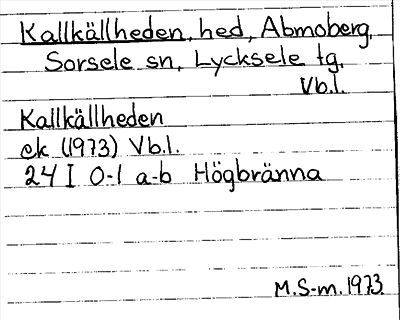 Kallkällheden, hed, Abmoberg,
Sorsele sn, Lycksele tg.
Vb.l.
Kallkällheden
ek (1973) Vb.l.
24 I 0-1 a-b Högbränna
M.S-m. 1973.